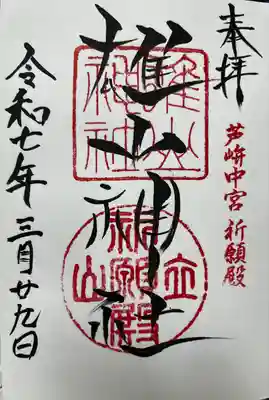 奉拝
芦峅中宮 祈願殿
雄山神社
雄山神社
立山
祈願殿
令和七年 三月廿九日